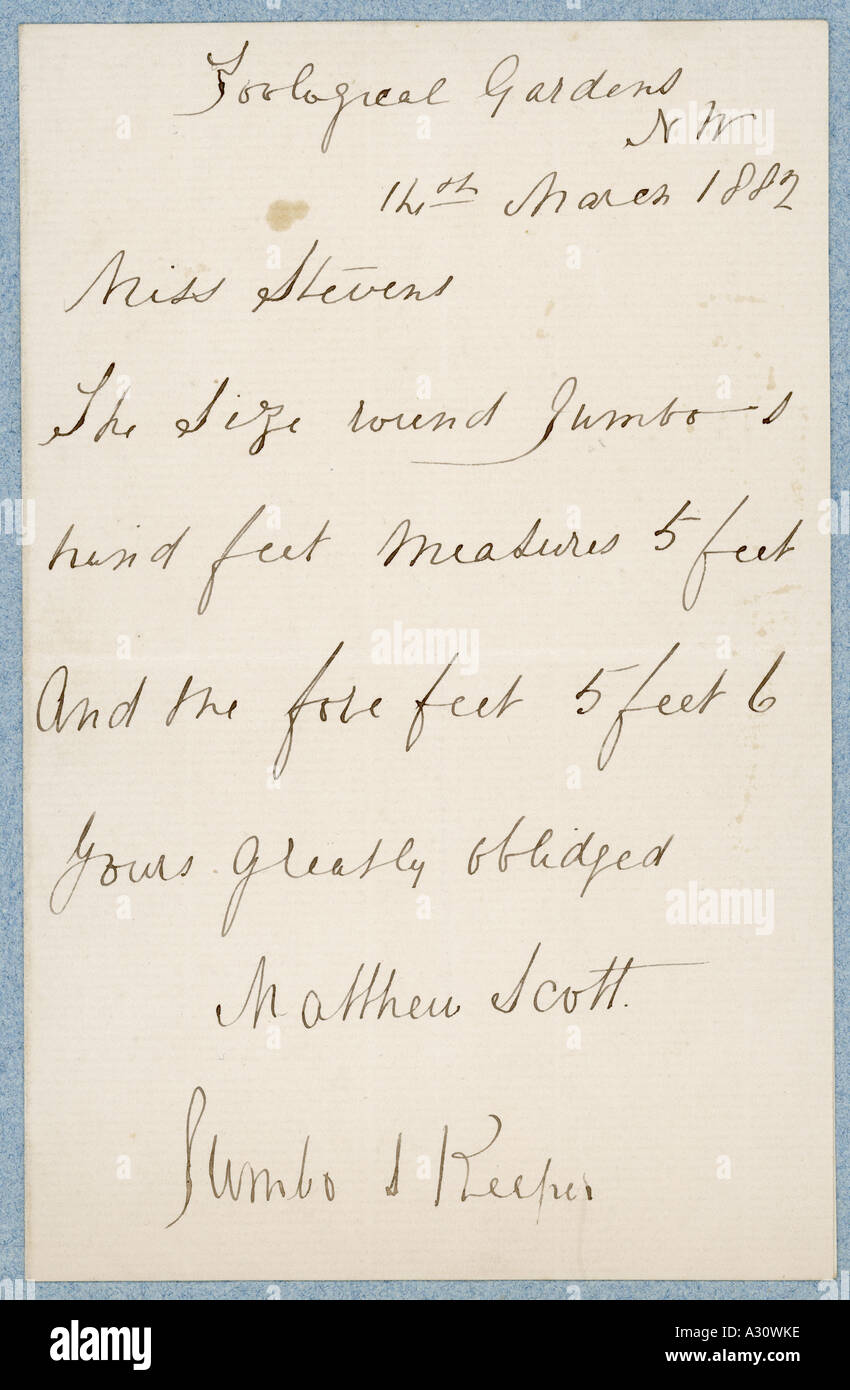 Zoological Gardens
N W
14th March 1882
Miss Stevens
The Size round Jumbo s
hind feet Measures 5 feet
And the fore feet 5 feet 6
Yours greatly oblidged
Matthew Scott.
Jumbo s Keeper
alamy
alamy
alamy
alamy
Image ID: A30WKE
www.alamy.com